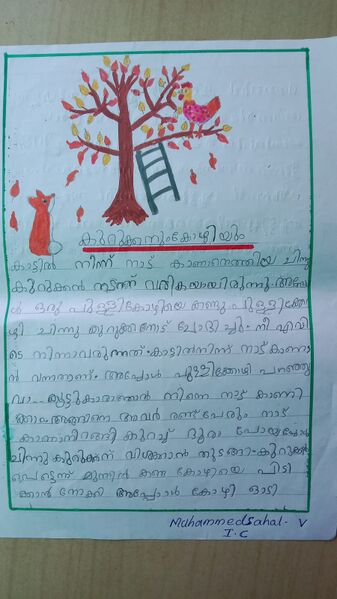 കുറുക്കനുംകോഴിയും
കാട്ടിൽ നിന്ന് നാട് കാണാനെത്തിയ ചിന്നു
കുറുക്കൻ നടന്ന് വരികയായിരുന്നു. അപ്പോ
ൾ ഒരു പുള്ളികോഴിയെ കണ്ടു പുള്ളിക്കോ
ഴി ചിന്നു കുറുക്കനോട് ചോദിച്ചു. നീ എവി
ടെ നിന്നാവരുന്നത്. കാട്ടിൽനിന്ന് നാട് കാണാ
ൻ വന്നതാണ്. അപ്പോൾ പുള്ളിക്കോഴി പറഞ്ഞു
വാ.. കൂട്ടുകാരാഞാൻ നിന്നെ നാട് കാണി
ക്കാം അങ്ങനെ അവർ രണ്ട് പേരും നാട്
കാണാനിറങ്ങി കുറച്ച് ദൂരം പോയപ്പോൾ
ചിന്നുകുറുക്കന് വിശക്കാൻ തുടങ്ങി. കുറുക്കൻ
പെട്ടെന്ന് മുന്നിൽ കണ്ട കോഴിയെ പിടി
ക്കാൻ നോക്കി അപ്പോൾ കോഴി ഓടി
Muhammed Sahal - V
I.C